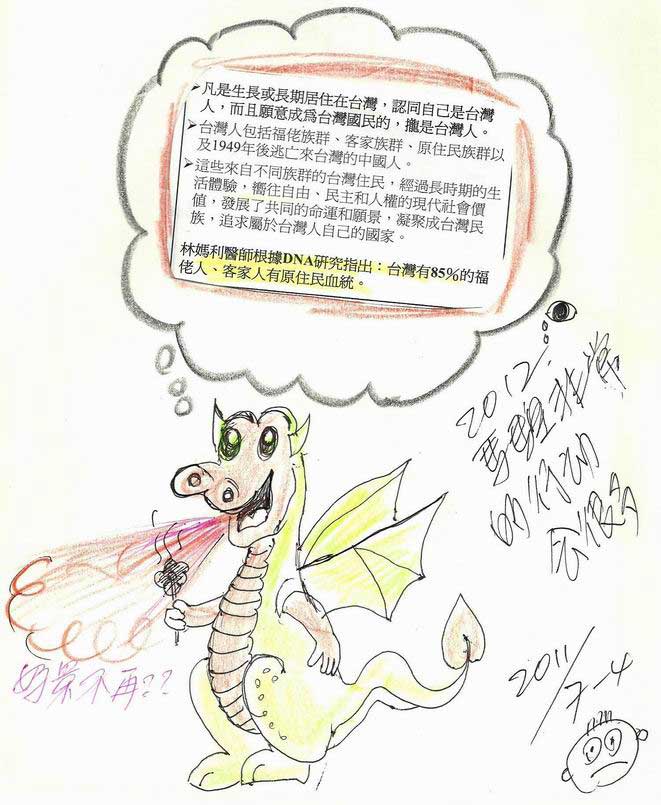 ➤凡是生長或長期居住在台灣，認同自己是台灣
人，而且願意成爲台灣國民的，攏是台灣人。
➤台灣人包括福佬族群、客家族群、原住民族群以
及1949年後逃亡來台灣的中國人。
➤這些來自不同族群的台灣住民，經過長時期的生
活體驗，嚮往自由、民主和人權的現代社會價
值，發展了共同的命運和願景，凝聚成台灣民
族，追求屬於台灣人自己的國家。
林媽利醫師根據DNA研究指出：台灣有85%的福
佬人、客家人有原住民血統。
2012.
非常
的行動
會很多
好景不再??
2011/7-4